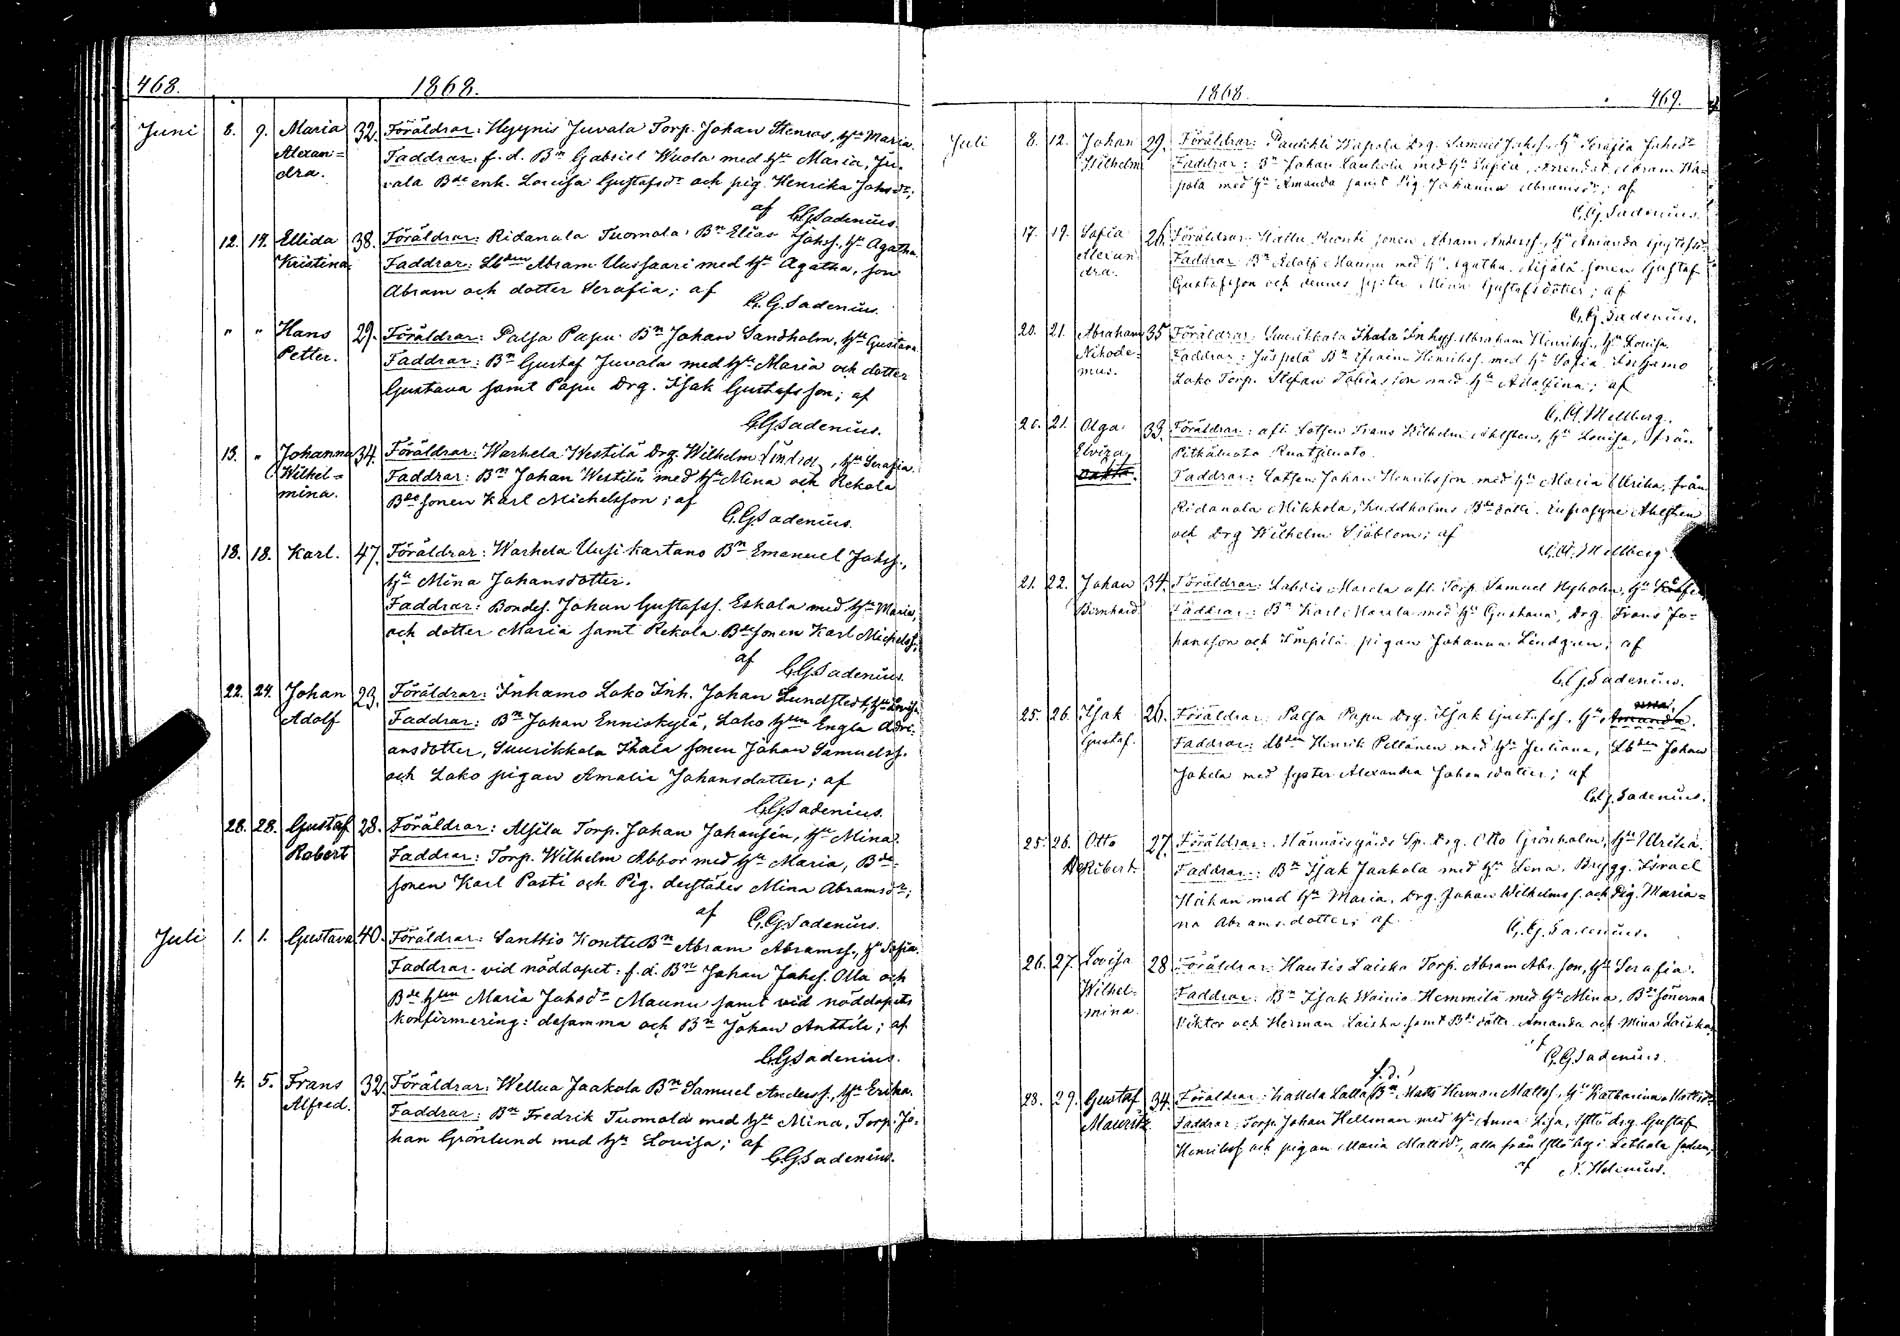 468. 1868.
Juni 8. 9. Maria 32. Föräldrar: Hyynis Juvala Torp. Johan Stenros, hu Maria.
Alexan= Faddrar: f. d. Bn Gabriel Wuola med hu Maria, Ju-
dra. vala Bde enk. Lovisa Gustafsdr och pig. Henrika Johsdr;
af C.G. Sadenius.
12. 14. Ellida 38. Föräldrar: Ridanala Tuomola Bn Elias Johss., hu Agatha.
Kristina. Faddrar: Lbden Abram Uussaari med hu Agatha, son
Abram och dotter Serafia; af
C.G. Sadenius.
" " Hans 29. Föräldrar: Palsa Papu Bn Johan Sandholm, hu Gustava.
Petter. Faddrar: Bn Gustaf Juvala med hu Maria och dotter
Gustava samt Papu Drg. Isak Gustafsson; af
C.G. Sadenius.
13. " Johanna 34. Föräldrar: Warhela Westilä Drg. Wilhelm Lindros, hu Serafia.
Wilhel= Faddrar: Bn Johan Westilä med hu Mina och Rekola
mina. Bde sonen Karl Michelsson; af
C.G. Sadenius.
18. 18. Karl. 47. Föräldrar: Warhela Uusikartano Bn Emanuel Johss.,
hu Mina Johansdotter.
Faddrar: Bondes. Johan Gustafss. Eskola med hu Maria,
och dotter Maria samt Rekola Bde sonen Karl Michelss;
af C.G. Sadenius.
22. 24. Johan 23. Föräldrar: Inhamo Lako Inh. Johan Lundstedt, hu Lovisa.
Adolf Faddrar: Bn Johan Enniskylä, Lako hun Engla Adri-
ansdotter, Suurikkala Ihala sonen Johan Samuelss.
och Lako pigan Amalia Johansdotter; af
C.G. Sadenius.
28. 28. Gustaf 28. Föräldrar: Alsila Torp. Johan Johansén, hu Mina.
Robert Faddrar: Torp. Wilhelm Abbor med hu Maria, Bde-
sonen Karl Pasti och Pig. derstädes Mina Abramsdr;
af C.G. Sadenius.
Juli 1. 1. Gustava 40. Föräldrar: Santtio Kontti Bn Abram Abramss., hu Sofia.
Faddrar vid nöddopet: f. d. Bn Johan Johss. Olla och
Bde hun Maria Johsdr Maunu samt vid nöddopets
konfirmering: desamma och Bn Johan Anttila; af
C.G. Sadenius.
4. 5. Frans 32. Föräldrar: Wellua Jaakola Bn Samuel Anderss., hu Erika.
Alfred. Faddrar: Bn Fredrik Tuomola med hu Mina, Torp. Jo-
han Grönlund med hu Lovisa; af
C.G. Sadenius.
1868. 469.
Juli 8. 12. Johan 29. Föräldrar: Wapola Drg. Samuel Johss., hu Serafia Johsdr
Wilhelm Faddrar: Bn Johan med hu Sofia, Abram Wa-
pola med hu Amanda samt Pig. Johanna Abramsdr; af
C.G. Sadenius.
17. 19. Sofia 26. Föräldrar: sonen Abram Anderss., hu Amanda
Alexan- Faddrar Bn Adolf Maunu med hu Agatha, sonen Gustaf
dra. Gustafsson och dennes syster Mina Gustafsdotter; af
C.G. Sadenius.
20. 21. Abraham 35 Föräldrar: Suurikkala Ihala Inhys. Abraham Henrikss., hu Lovisa.
Nikode- Faddrar: Bn Efraim Henrikss. med hu Sofia, Inhamo
mus. Lako Torp. Stefan Tobiasson med hu Adolfina; af
Mellberg.
20. 21. Olga 33. Föräldrar: afl. Lotsen Frans Wilhelm Ahlsten, hu Lovisa, från
Elviza Pitkäluoto
Faddrar: Lotsen Johan Henriksson med hu Maria Ulrika, från
Ridanala Mikkola, Bde dottr. Eufrosyne Ahlsten
och Drg Wilhelm Sjöblom; af
Mellberg
21. 22. Johan 34. Föräldrar: Marela afl. Torp. Samuel Nyholm, hu
Bernhard Faddrar: Bn Karl Marela med hu Gustava, Drg. Frans Jo-
hansson och pigan Johanna Lindgren; af
C.G. Sadenius.
25. 26. Isak 26. Föräldrar: Palsa Papu Drg. Isak Gustafss., hu Amanda.
Gustaf. Faddrar: Lbden Henrik Peltonen med hu Juliana, Lbden Johan
Jakola med syster Alexandra Johansdotter; af
C.G. Sadenius.
25. 26. Otto 27. Föräldrar: Sp. Drg. Otto Grönholm, hu Ulrika.
Ribert. Faddrar: Bn Isak Jaakola med hu Lena, Israel
med hu Maria, Drg. Johan Wilhelmss. och Pig. Maria=
na Abramsdotter; af C.G. Sadenius.
26. 27. Lovisa 28 Föräldrar: Hautis Laiska Torp. Abram Abr.son, hu Serafia.
Wilhel- Faddrar: Bn Isak Wainio Hemmilä med hu Mina, Bde sönerna
mina. Viktor och Herman Laiska samt Bde döttr. Amanda och Mina Laiska;
af C.G. Sadenius.
f.d.
28. 29. Gustaf 34. Föräldrar: Bn Matts Herman Mattss., hu Katharina Mattsdr
Mauritz Faddrar: Torp. Johan Hellman med hu Anna Lisa, drg. Gustaf
Henrikss och pigan Maria Mattsdr, alla från
af N. Helenius.